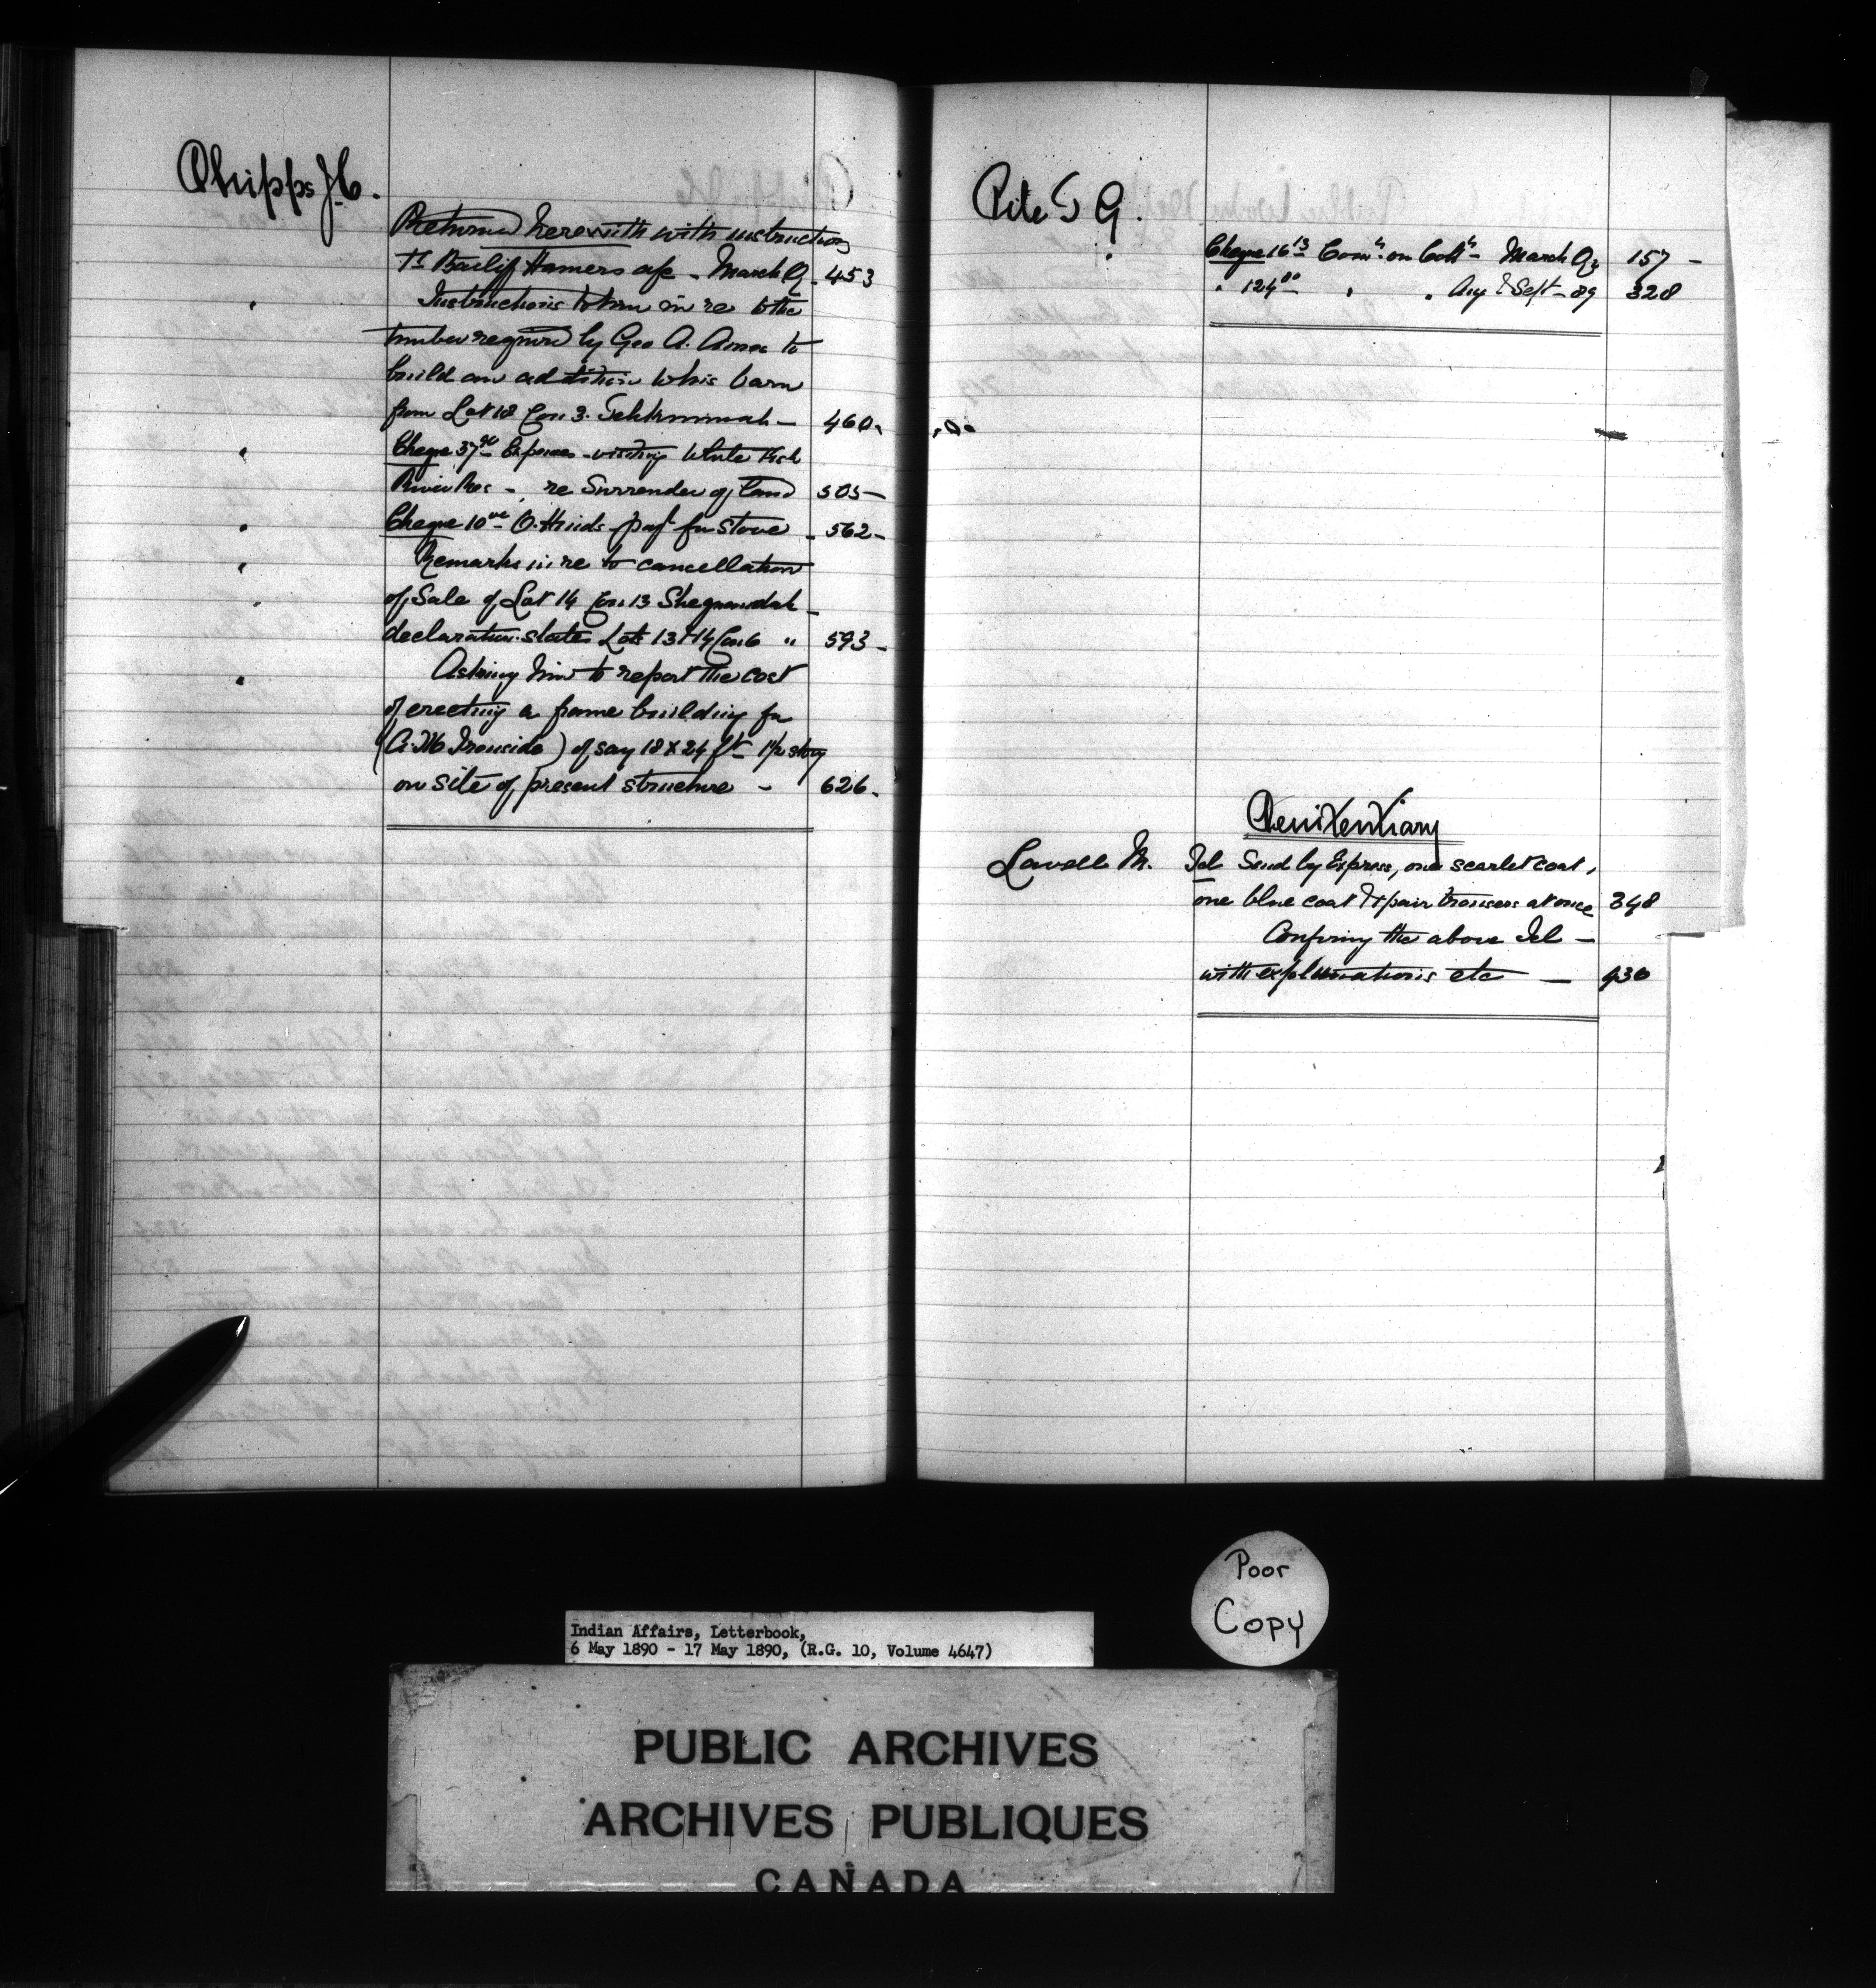 Phipps J.C.
Returned herewith with instructions
Ts Bailiff Hamers a/c - March Q - 453
" Instructions to him in re to the
timber required by Geo A. Amos to
build an addition to his barn
from Lot 18 Con 3. Tehkummah - 460.
" Cheque 37 90 Expenses visiting White Fish
River Res - re Surrender of land 505 -
" Cheque 10 00 O. Hinds pay't for stove - 562 -
" Remarks in re to cancellation
" of Sale of Lot 14 Con 13 Sheguiandah -
declaration states Lots 13 & 14 Con 6 " 593 -
" Asking him to report the cost
of erecting a frame building for
(A. M. Ironside) of say 18 x 24 ft - 1 1/2 story
on site of present structure - 626.
Pile T G.
" Cheque 16 13 Comn. on Colln - March Qr 157 -
" 124 00 " " Aug & Sept - 89 328
Penitentiary
Lavell M. Tel Send by Express, one scarlet coat,
one blue coat & 1 pair trousers at once 348
Confirming the above Tel -
with explanations etc - 430
Poor
Copy
Indian Affairs, Letterbook,
6 May 1890 - 17 May 1890, (R.G. 10, Volume 4647)
PUBLIC ARCHIVES
ARCHIVES PUBLIQUES
CANADA